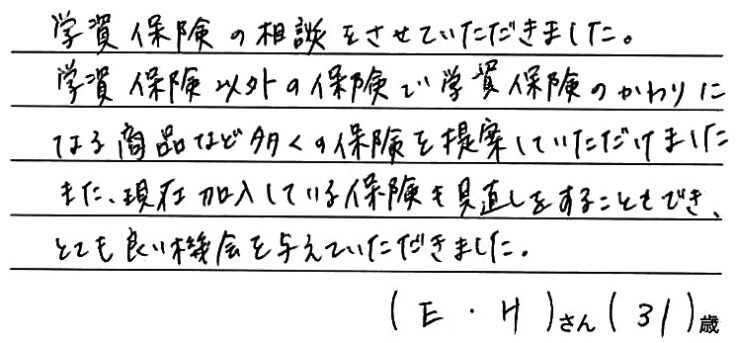 学資保険の相談をさせていただきました。
学資保険以外の保険で学資保険のかわりに
なる商品など多くの保険を提案していただけました
また、現在加入している保険も見直しをすることもでき、
とても良い機会を与えていただきました。
(E・H)さん(31)歳